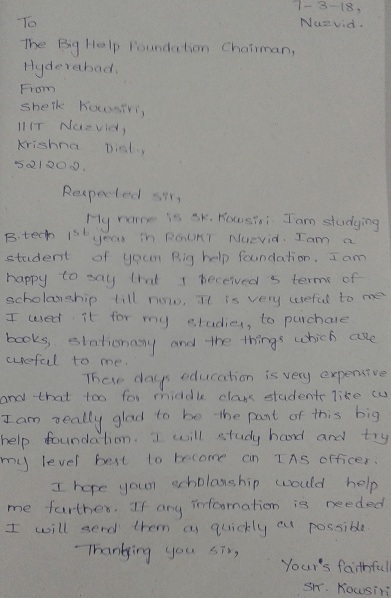 7-3-18,
Nuzvid.
To
The Big Help Foundation Chairman,
Hyderabad.
From
Sheik Kowsiri,
IIIT Nuzvid,
Krishna Dist.,
521202.
Respected sir,
My name is SK. Kowsiri. I am studying
B.tech 1st year in RGUKT Nuzvid. I am a
student of your Big help foundation. I am
happy to say that I received 5 terms of
scholarship till now. It is very useful to me
I used it for my studies, to purchase
books, stationary and the things which are
useful to me.
These days education is very expensive
and that too for middle class students like us
I am really glad to be the part of this big
help foundation. I will study hard and try
my level best to become an IAS officer.
I hope your scholarship would help
me further. If any information is needed
I will send them as quickly as possible
Thanking you sir,
Your's faithfull
SK. Kowsiri